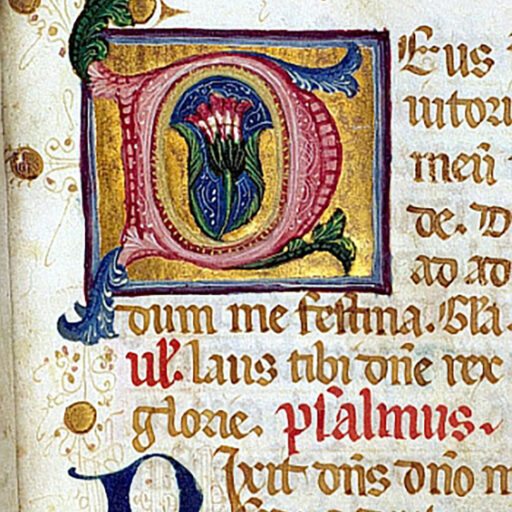 Deus
iutori
meū
de. D
ad ad
dum me festina. Gla.
ul'. laus tibi dn̄e rex
glorie. psalmus.
Dixit dn̄s dn̄o m